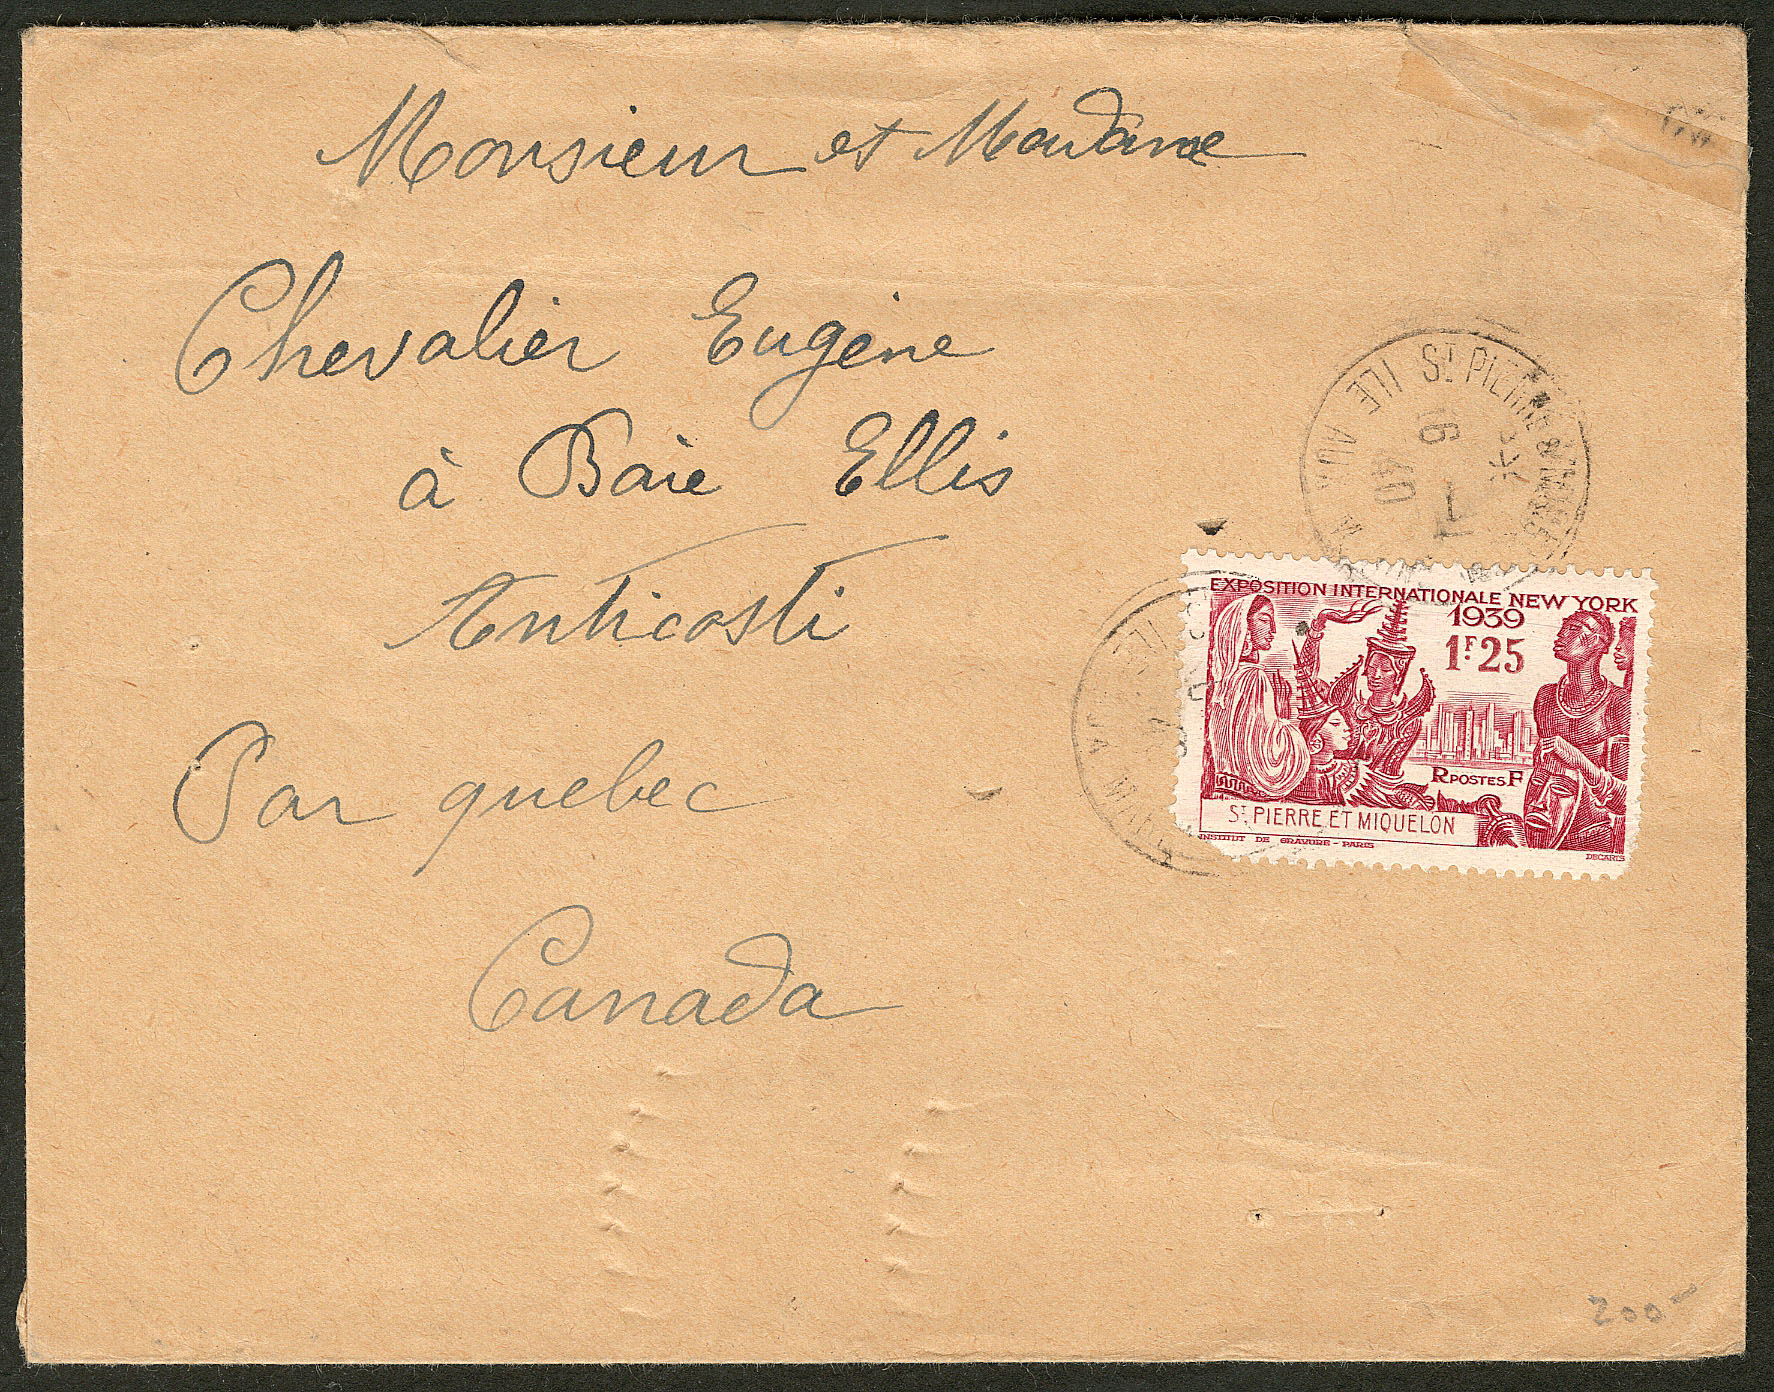 Monsieur et Madame
Chevalier Eugène
à Baie Ellis
Anticosti
Par quebec
Canada
ILE AUX M
ST PIERRE &
16
7
40
EXPOSITION INTERNATIONALE NEW YORK
1939
1F.25
RPOSTESF
ST PIERRE ET MIQUELON
INSTITUT DE GRAVURE - PARIS
DECARIS
200-